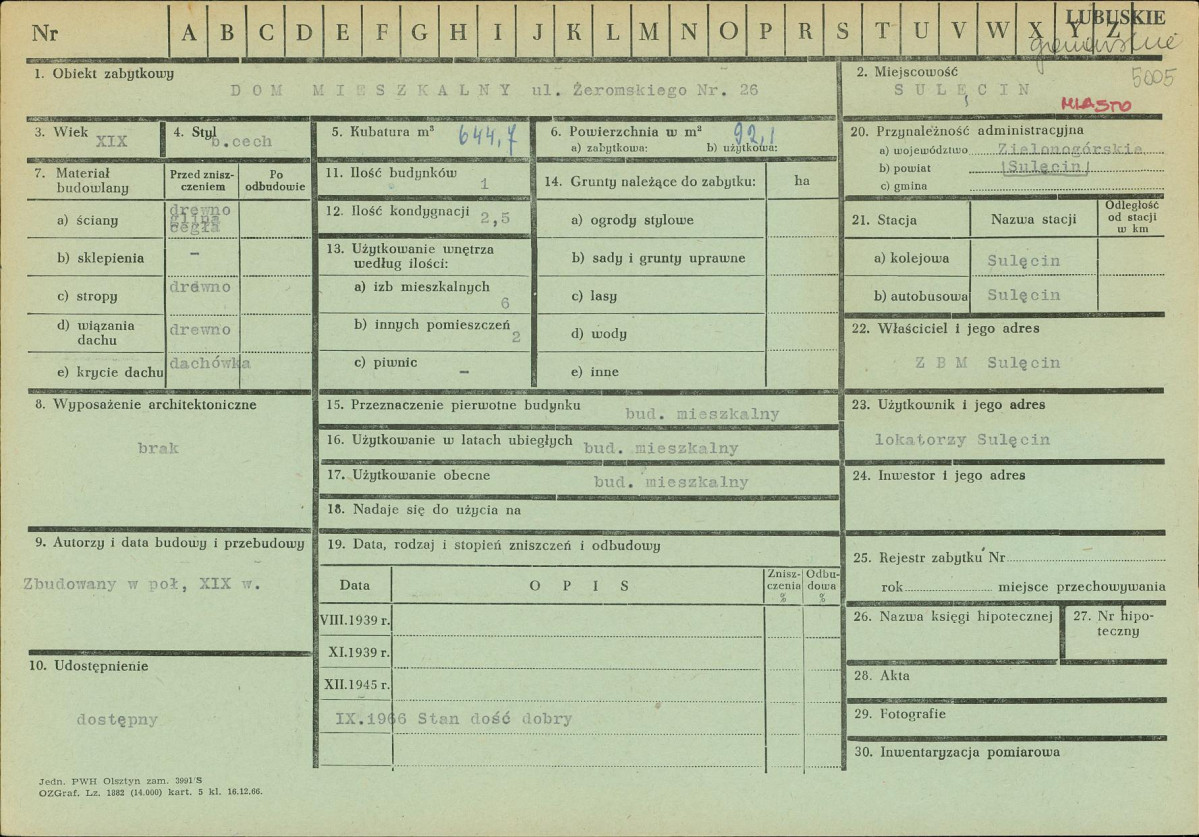 Nr A B C D E F G H I J K L M N O P R S T U V W X Y Z
LUBUSKIE
5005
1. Obiekt zabytkowy
DOM MIESZKALNY ul. Żeromskiego Nr. 26
2. Miejscowość
SULĘCIN
MIASTO
3. Wiek
XIX
4. Styl
b.cech
5. Kubatura m³ 644,7
6. Powierzchnia w m² 92,1
a) zabytkowa: b) użytkowa:
7. Materiał budowlany
Przed zniszczeniem
Po odbudowie
a) ściany
drewno
glina
cegła
b) sklepienia -
c) stropy drewno
d) wiązania dachu drewno
e) krycie dachu dachówka
8. Wyposażenie architektoniczne
brak
9. Autorzy i data budowy i przebudowy
Zbudowany w poł, XIX w.
10. Udostępnienie
dostępny
11. Ilość budynków 1
12. Ilość kondygnacji 2,5
13. Użytkowanie wnętrza według ilości:
a) izb mieszkalnych 6
b) innych pomieszczeń 2
c) piwnic -
14. Grunty należące do zabytku: ha
a) ogrody stylowe
b) sady i grunty uprawne
c) lasy
d) wody
e) inne
15. Przeznaczenie pierwotne budynku bud. mieszkalny
16. Użytkowanie w latach ubiegłych bud. mieszkalny
17. Użytkowanie obecne bud. mieszkalny
18. Nadaje się do użycia na
19. Data, rodzaj i stopień zniszczeń i odbudowy
Data OPIS Zniszczenia % Odbudowa %
VIII.1939 r.
XI.1939 r.
XII.1945 r.
IX.1966 Stan dość dobry
20. Przynależność administracyjna
a) województwo Zielonogórskie
b) powiat Sulęcin
c) gmina
21. Stacja Nazwa stacji Odległość od stacji w km
a) kolejowa Sulęcin
b) autobusowa Sulęcin
22. Właściciel i jego adres
Z B M Sulęcin
23. Użytkownik i jego adres
lokatorzy Sulęcin
24. Inwestor i jego adres
25. Rejestr zabytku Nr
rok miejsce przechowywania
26. Nazwa księgi hipotecznej
27. Nr hipoteczny
28. Akta
29. Fotografie
30. Inwentaryzacja pomiarowa
Jedn. PWH Olsztyn zam. 3991/S
OZGraf. Lz. 1882 (14.000) kart. 5 kl. 16.12.66.